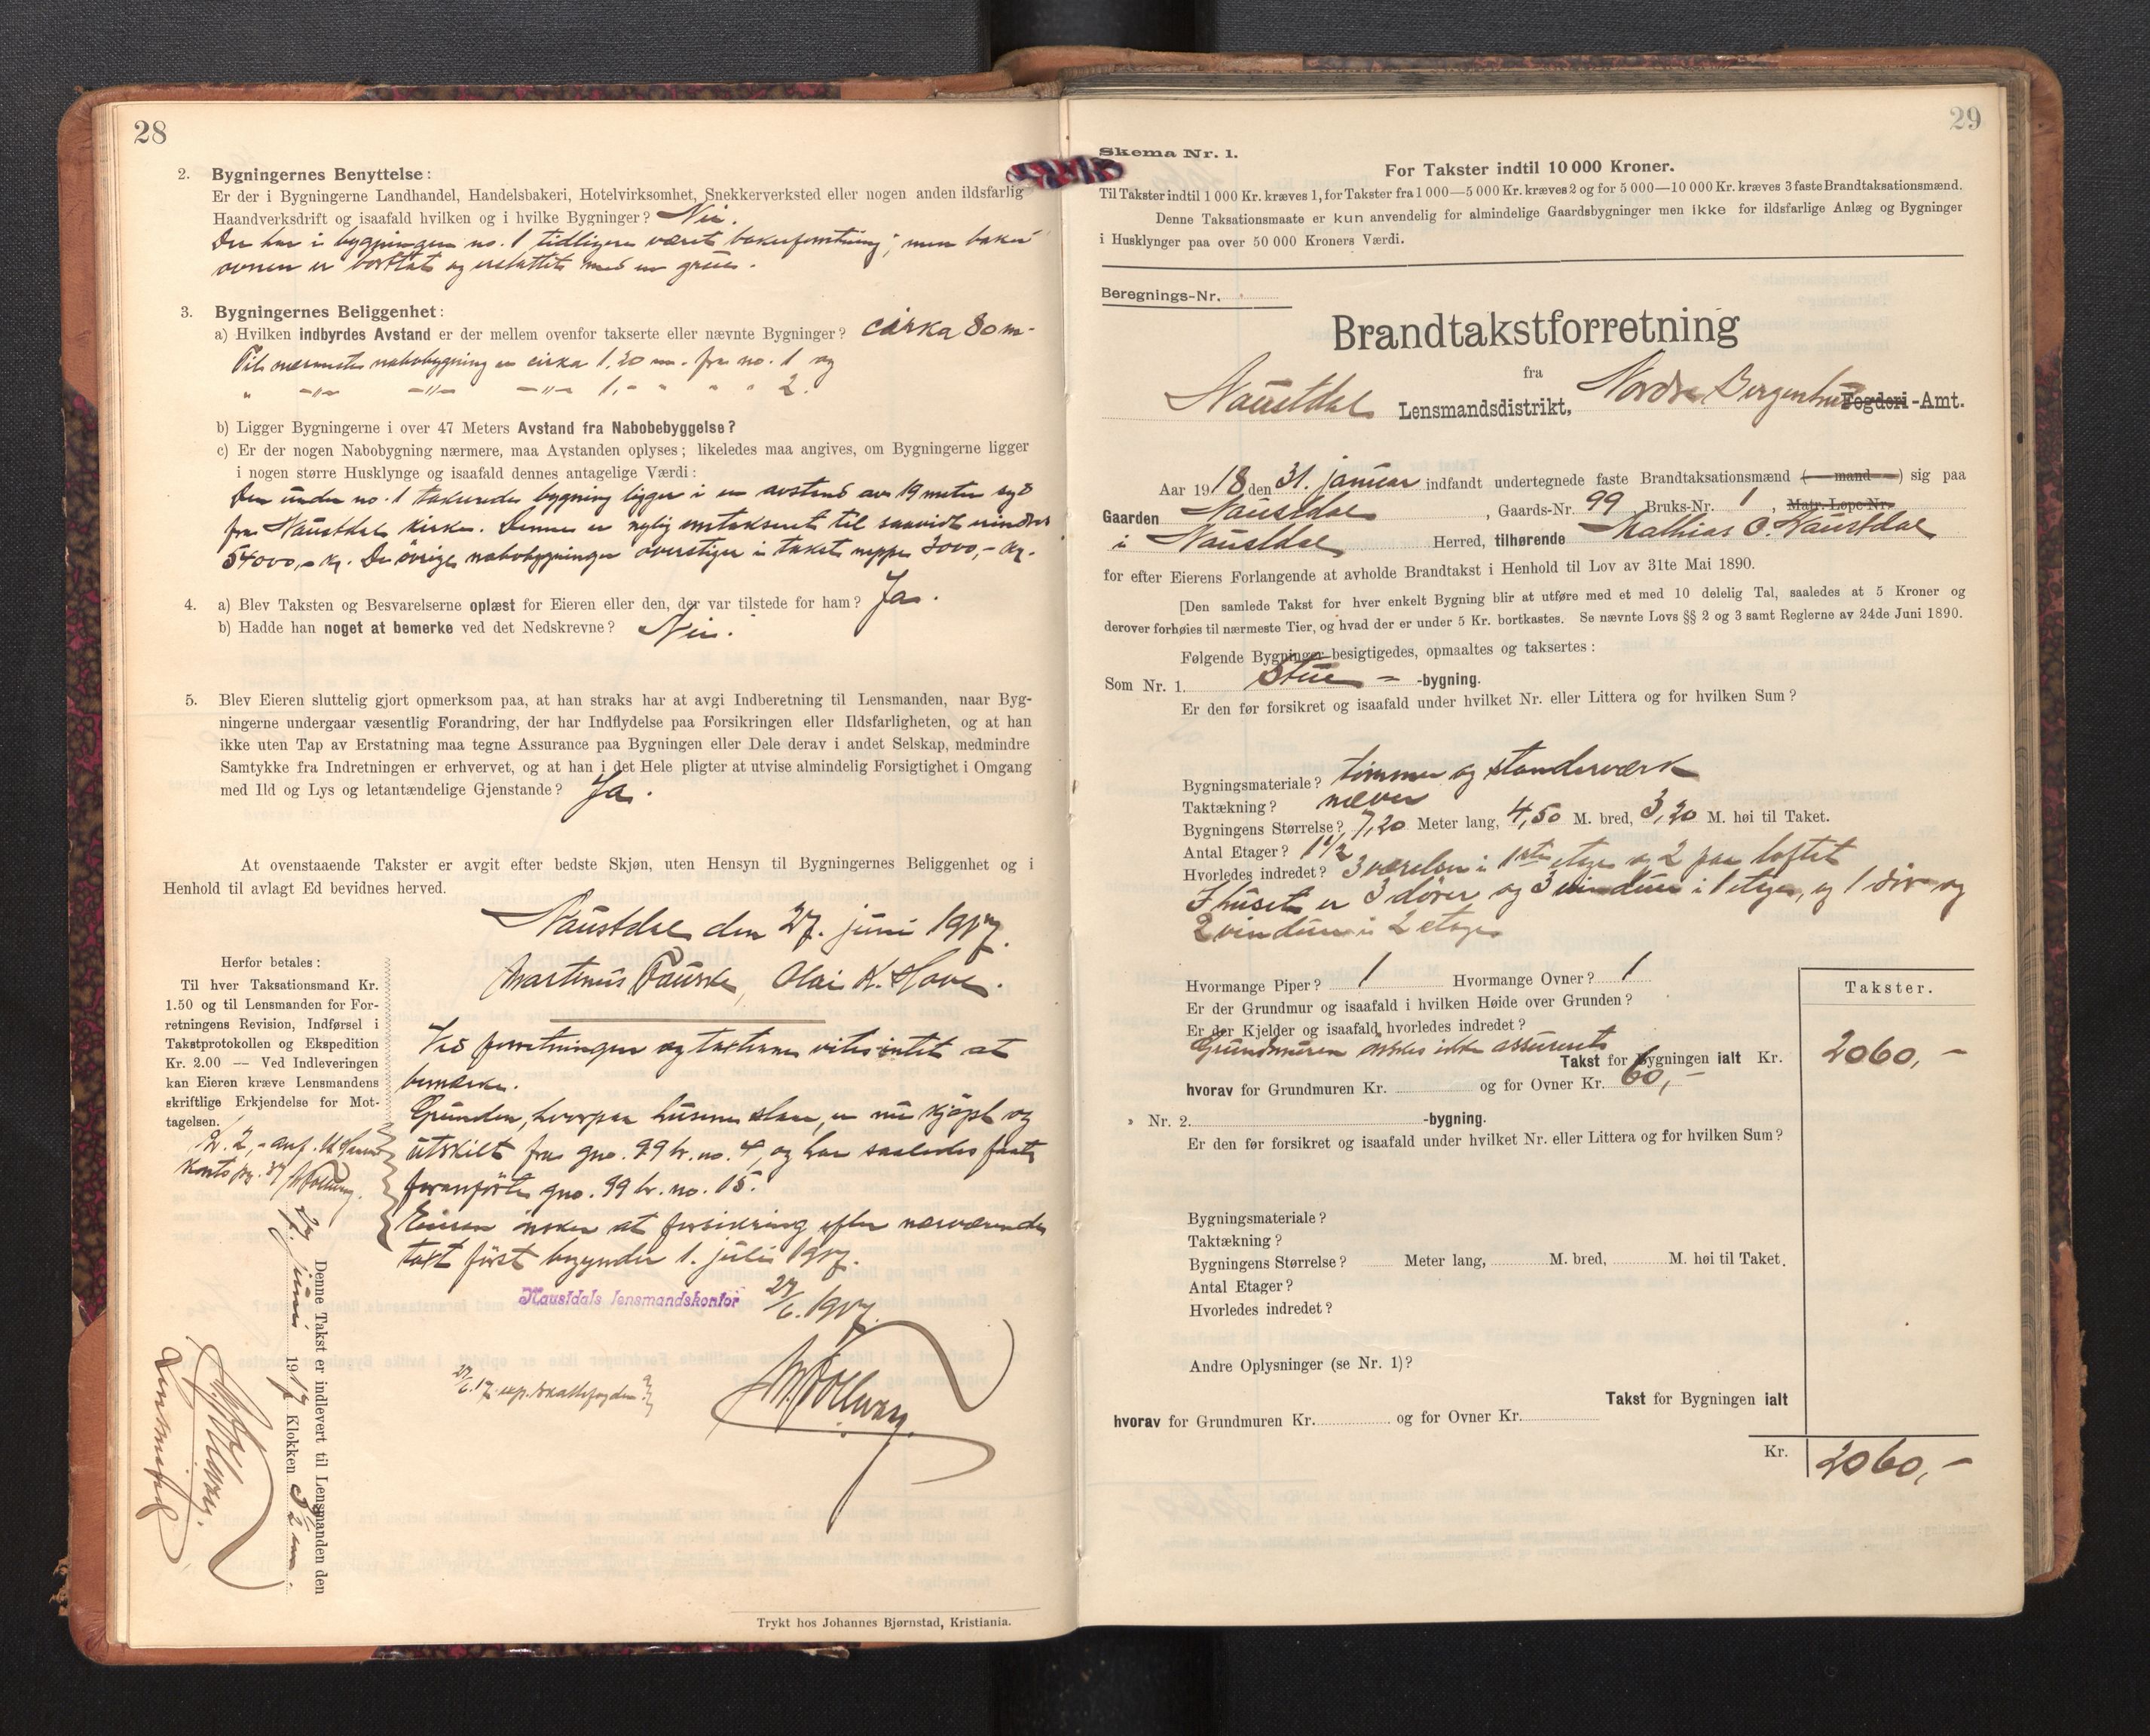 28
2. Bygningernes Benyttelse:
Er der i Bygningerne Landhandel, Handelsbakeri, Hotelvirksomhet, Snekkerverksted eller nogen anden ildsfarlig
Haandverksdrift og isaafald hvilken og i hvilke Bygninger? Nei.
Der har i bygningen no. 1 tidligere været bakerforretning; men baker
ovnen er borttat og erstattet med en grue.
3. Bygningernes Beliggenhet:
a) Hvilken indbyrdes Avstand er der mellem ovenfor takserte eller nævnte Bygninger? cirka 80 m.
Til nærmeste nabobygning er cirka 1,20 m. fra no. 1 og
" -"- -"- -"- 1,- " " " 2.
b) Ligger Bygningerne i over 47 Meters Avstand fra Nabobebyggelse?
c) Er der nogen Nabobygning nærmere, maa Avstanden oplyses; likeledes maa angives, om Bygningerne ligger
i nogen større Husklynge og isaafald dennes antagelige Værdi:
Den under no. 1 takserede bygning ligger i en avstand av 19 meter syd
fra Naustdal kirke. Denne er nylig omtakseret til saavidt erindres
54000,- kr. De övrige nabobygninger overstiger i takst neppe 3000,- kr.
4. a) Blev Taksten og Besvarelserne oplæst for Eieren eller den, der var tilstede for ham? Ja.
b) Hadde han noget at bemerke ved det Nedskrevne? Nei.
5. Blev Eieren sluttelig gjort opmerksom paa, at han straks har at avgi Indberetning til Lensmanden, naar Byg-
ningerne undergaar væsentlig Forandring, der har Indflydelse paa Forsikringen eller Ildsfarligheten, og at han
ikke uten Tap av Erstatning maa tegne Assurance paa Bygningen eller Dele derav i andet Selskap, medmindre
Samtykke fra Indretningen er erhvervet, og at han i det Hele pligter at utvise almindelig Forsigtighet i Omgang
med Ild og Lys og letantændelige Gjenstande? Ja.
At ovenstaaende Takster er avgit efter bedste Skjøn, uten Hensyn til Bygningernes Beliggenhet og i
Henhold til avlagt Ed bevidnes herved.
Naustdal den 27. juni 1917.
Martinus Fauske, Olai K. Hove.
Herfor betales:
Til hver Taksationsmand Kr.
1.50 og til Lensmanden for For-
retningens Revision, Indførsel i
Takstprotokollen og Ekspedition
Kr. 2.00 — Ved Indleveringen
kan Eieren kræve Lensmandens
skriftlige Erkjendelse for Mot-
tagelsen.
Ved forretningen og taksterne vites intet at
bemerke.
Grunden, hvorpaa husene staar, er nu kjøpt og
utskilt fra gno. 99 br. no. 4, og har saaledes faat
foranförte gno. 99 br. no. 15.
Eieren önsker at forsikring efter nærværende
takst först begynder 1. juli 1917.
Naustdals lensmandskontor 27/6. 1917.
27/6.17.
Denne Takst er indlevert til Lensmanden den
27. juni 1917 Klokken 5 1/2 em.
Lensmand
Trykt hos Johannes Bjørnstad, Kristiania.
29
Skema Nr. 1.
For Takster indtil 10 000 Kroner.
Til Takster indtil 1 000 Kr. kræves 1, for Takster fra 1 000—5 000 Kr. kræves 2 og for 5 000—10 000 Kr. kræves 3 faste Brandtaksationsmænd.
Denne Taksationsmaate er kun anvendelig for almindelige Gaardsbygninger men ikke for ildsfarlige Anlæg og Bygninger
i Husklynger paa over 50 000 Kroners Værdi.
Beregnings-Nr.
Brandtakstforretning
fra
Naustdal Lensmandsdistrikt, Nordre Bergenhus Fogderi-Amt.
Aar 1918 den 31. januar indfandt undertegnede faste Brandtaksationsmænd (—mand—) sig paa
Gaarden Naustdal, Gaards-Nr. 99 Bruks-Nr. 1, Matr. Løpe-Nr.
i Naustdal Herred, tilhørende Mathias O. Naustdal
for efter Eierens Forlangende at avholde Brandtakst i Henhold til Lov av 31te Mai 1890.
[Den samlede Takst for hver enkelt Bygning blir at utføre med et med 10 delelig Tal, saaledes at 5 Kroner og
derover forhøies til nærmeste Tier, og hvad der er under 5 Kr. bortkastes. Se nævnte Lovs §§ 2 og 3 samt Reglerne av 24de Juni 1890.
Følgende Bygninger besigtigedes, opmaaltes og taksertes:
Som Nr. 1. Stue - -bygning.
Er den før forsikret og isaafald under hvilket Nr. eller Littera og for hvilken Sum?
Bygningsmateriale? tömmer og standerværk
Taktækning? næver
Bygningens Størrelse? 7,20 Meter lang, 4,50 M. bred, 3,20 M. høi til Taket.
Antal Etager? 1 1/2
Hvorledes indredet? 3 værelser i 1ste etage og 2 paa loftet
I huset er 3 dører og 3 vinduer i 1 etage, og 1 dör og
2 vinduer i 2 etage
Hvormange Piper? 1 Hvormange Ovner? 1
Er der Grundmur og isaafald i hvilken Høide over Grunden?
Er der Kjelder og isaafald hvorledes indredet?
Grundmuren ønskes ikke assureret
Takster.
Takst for Bygningen ialt Kr. 2060,-
hvorav for Grundmuren Kr. og for Ovner Kr. 60,-
» Nr. 2. -bygning.
Er den før forsikret og isaafald under hvilket Nr. eller Littera og for hvilken Sum?
Bygningsmateriale?
Taktækning?
Bygningens Størrelse? Meter lang, M. bred, M. høi til Taket.
Antal Etager?
Hvorledes indredet?
Andre Oplysninger (se Nr. 1)?
Takst for Bygningen ialt
hvorav for Grundmuren Kr. og for Ovner Kr.
Kr. 2060,-